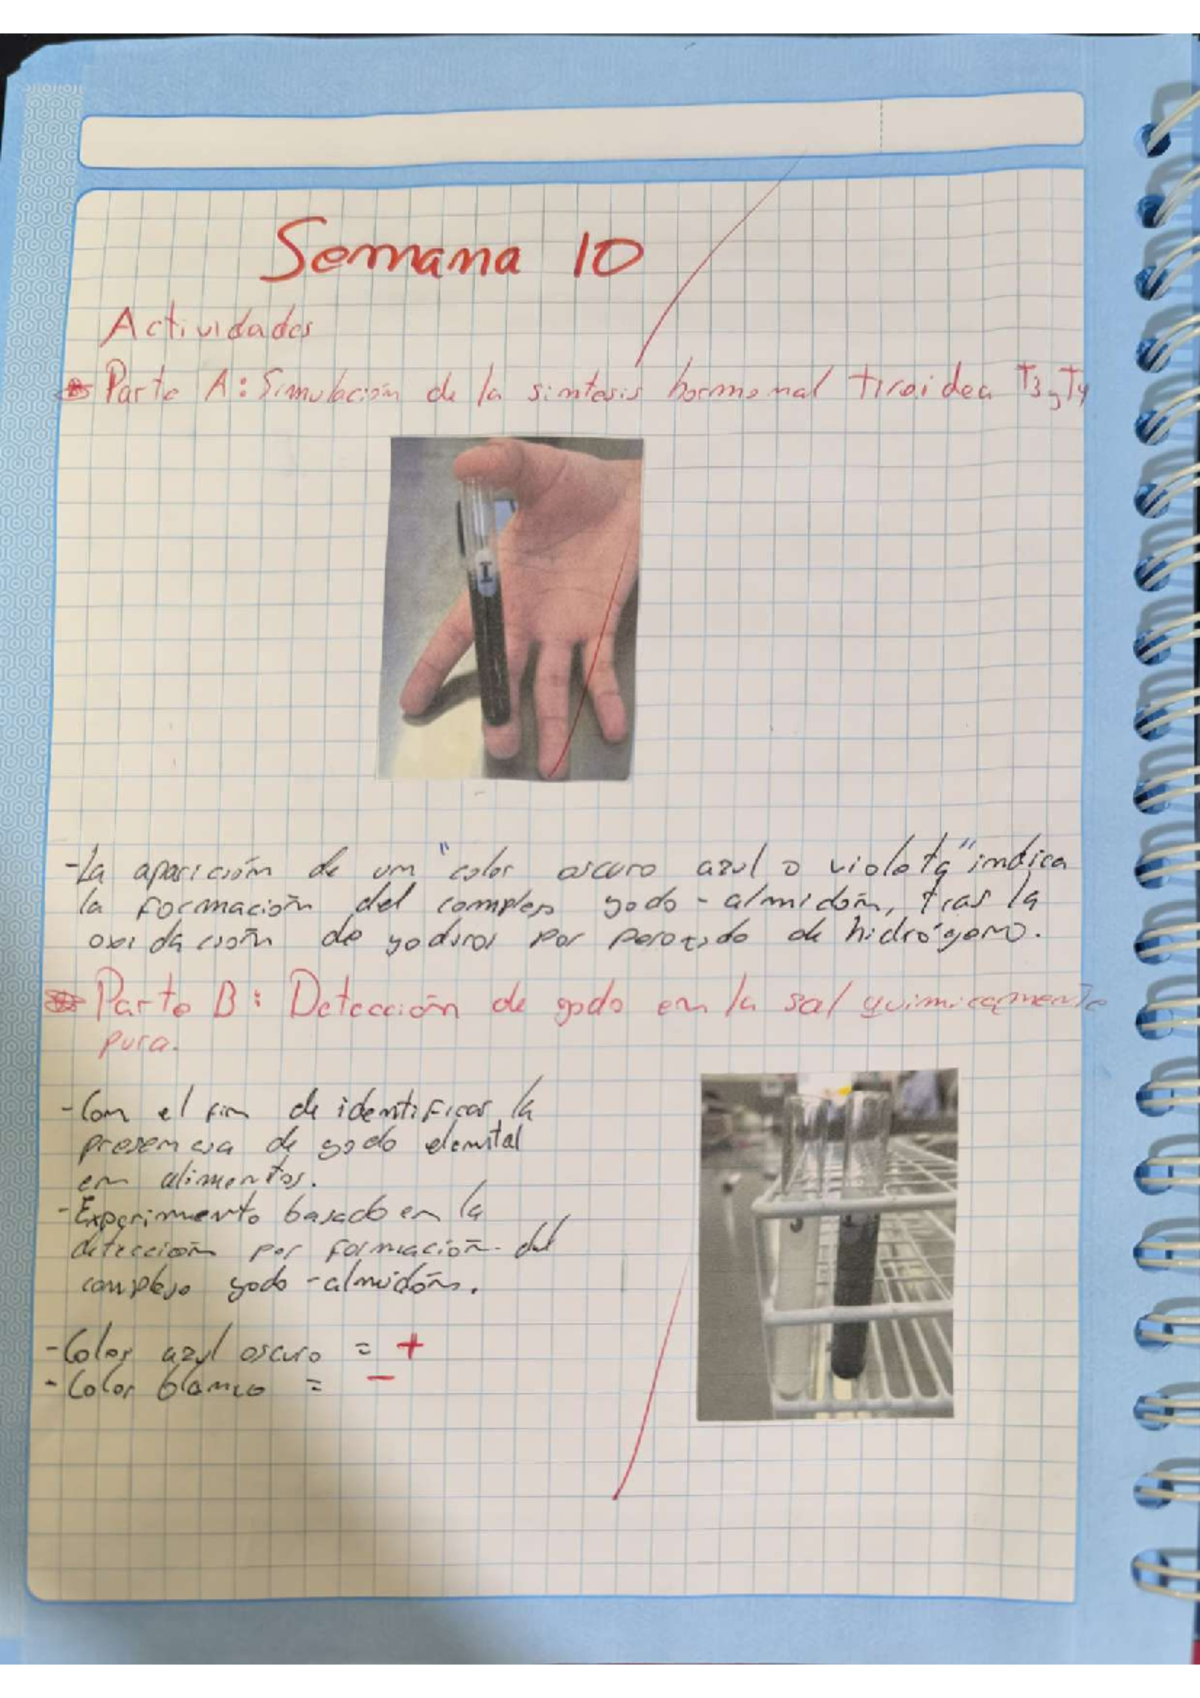 Semana 10
Actividades
Parte A: Simulación de la síntesis hormonal tiroidea T3 y T4
I
-La aparición de un "color oscuro azul o violeta" indica
la formación del complejo yodo-almidón, tras la
oxidación de yoduros por peróxido de hidrógeno.
Parte B: Detección de yodo en la sal químicamente
pura.
-Con el fin de identificar la
presencia de yodo elemital
en alimentos.
-Experimento basado en la
detección por formación del
complejo yodo-almidón.
-Color azul oscuro = +
-Color blanco = -